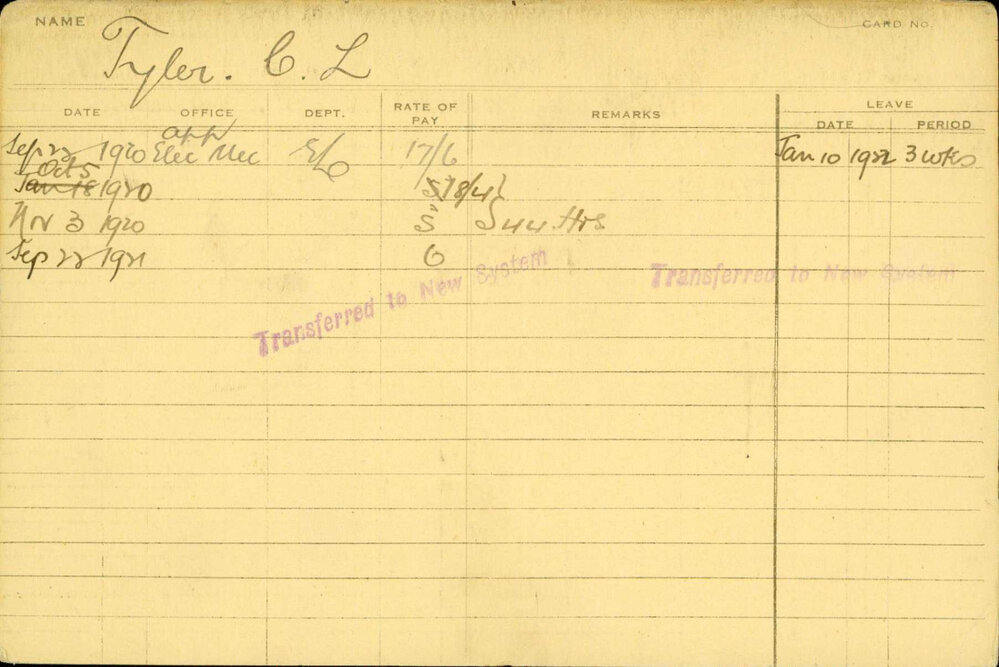 NAME CARD No.
Tyler. C. L
DATE OFFICE DEPT. RATE OF PAY REMARKS LEAVE
DATE PERIOD
app
Sep 22 1920 Elec Mec E/O 17/6 Jan 10 1922 3 wks
Oct 5
Jan 18 1920 S 18/4
Nov 3 1920 S 44 Hrs
Sep 22 1921 G
Transferred to New System
Transferred to New System